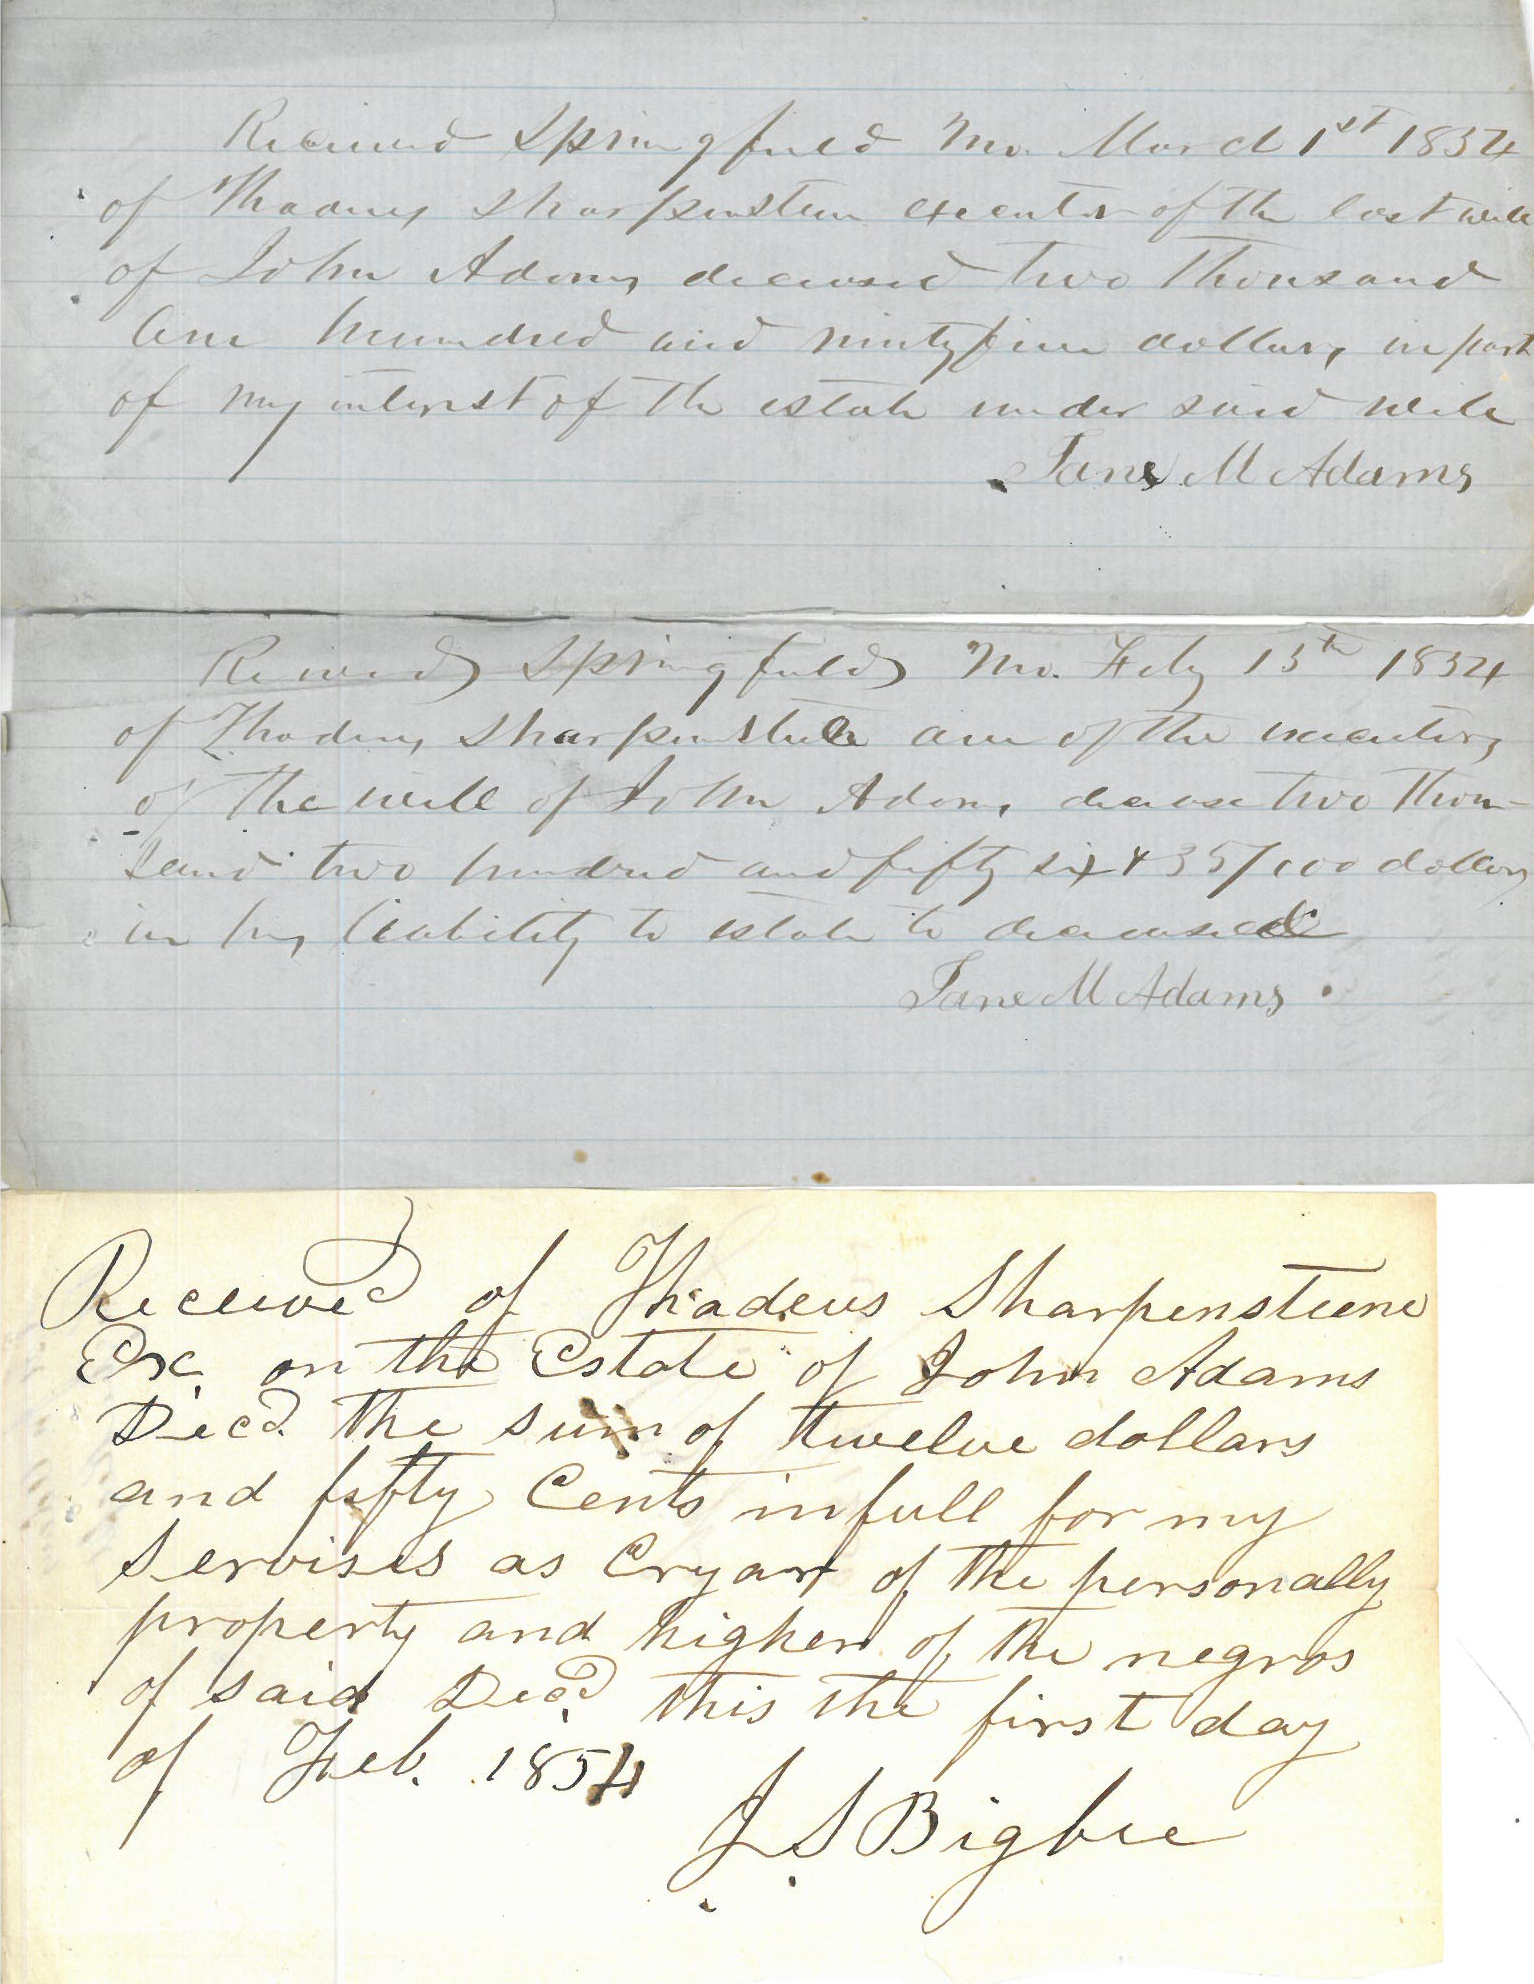 Received Springfield Mo. March 1st 1854
of Thadeus Sharpenstein executor of the last will
of John Adams deceased two thousand
one hundred and ninty five dollars, in part
of my interest of the estate under said will
Jane M Adams
Received Springfield Mo. Feby 15th 1854
of Thadeus Sharpenstein one of the executors
of the will of John Adams decease two thou-
sand two hundred and fifty six & 35/100 dollars
in his liability to estate to deceased
Jane M Adams
Received of Thadeus Sharpensteene
Ex. on the Estate of John Adams
Decd. the sum of twelve dollars
and fifty Cents in full for my
Servises as Cryar of the personally
property and higher of the negros
of said Decd this the first day
of Feb. 1854
J S Bigbee